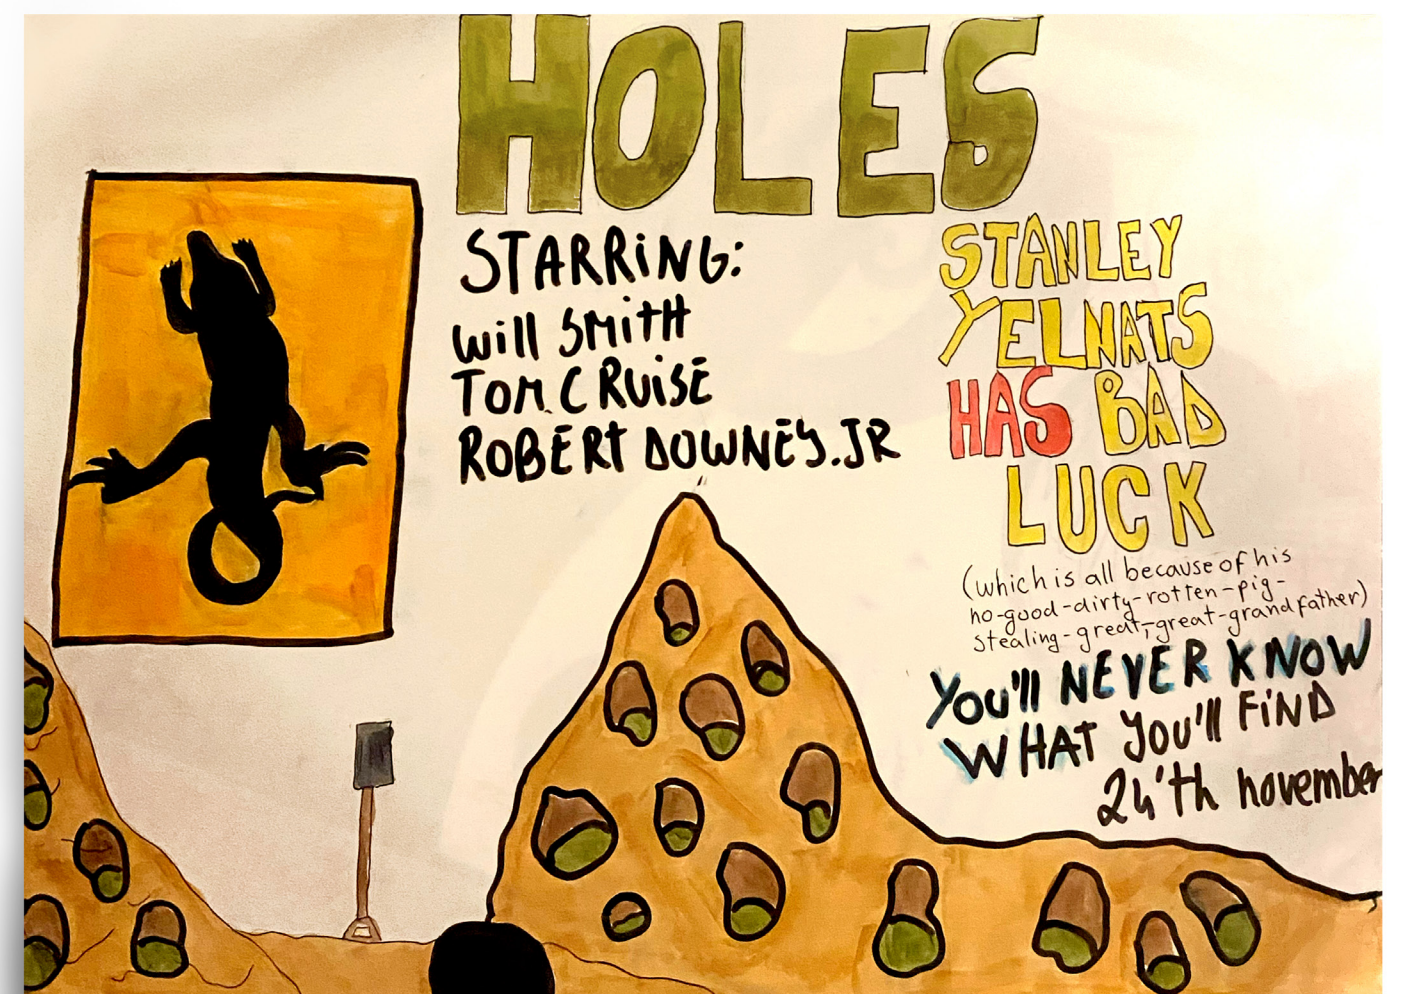 HOLES
STARRiNG:
Will SMitH
TOM.CRUiSE
ROBERt DOWNEY.JR
STANLEY
YELNATS
HAS BAD
LUCK
(which is all because of his
no-good-dirty-rotten-pig-
stealing-great-great-grandfather)
You'll NEVER KNOW
WHAT You'll FiND
24'th november